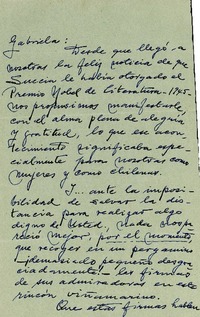 Gabriela:
Desde que llegó a
nosotras la feliz noticia de que
Suecia le había otorgado el
Premio Nobel de Literatura - 1945 -
nos propusimos manifestarle,
con el alma plena de alegría
y gratitud, lo que ese acon-
tecimiento significaba espe-
cialmente para nosotras como
mujeres y como chilenas.
I... ante la imposi-
bilidad de salvar la dis-
tancia para realizar algo
digno de Usted, nada nos pa-
reció mejor, por el momento,
que recoger en un pergamino
¡demasiado pequeño desgra-
ciadamente! las firmas
de sus admiradoras en este
rincón viñamarino.
Que estas firmas hablen